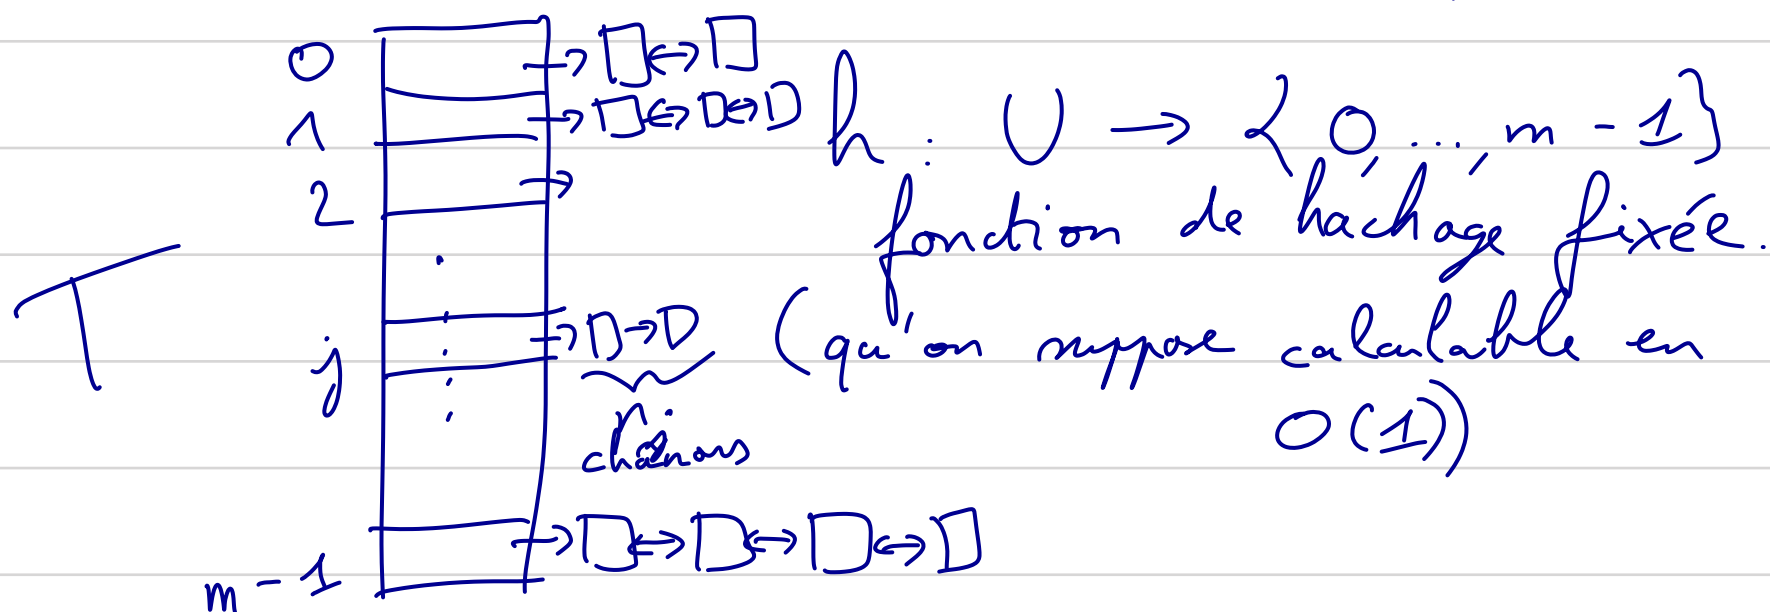 0
1
2
T
j
m-1
chaînons
h : U → {0, ..., m-1}
fonction de hachage fixée.
(qu'on suppose calculable en
O(1))